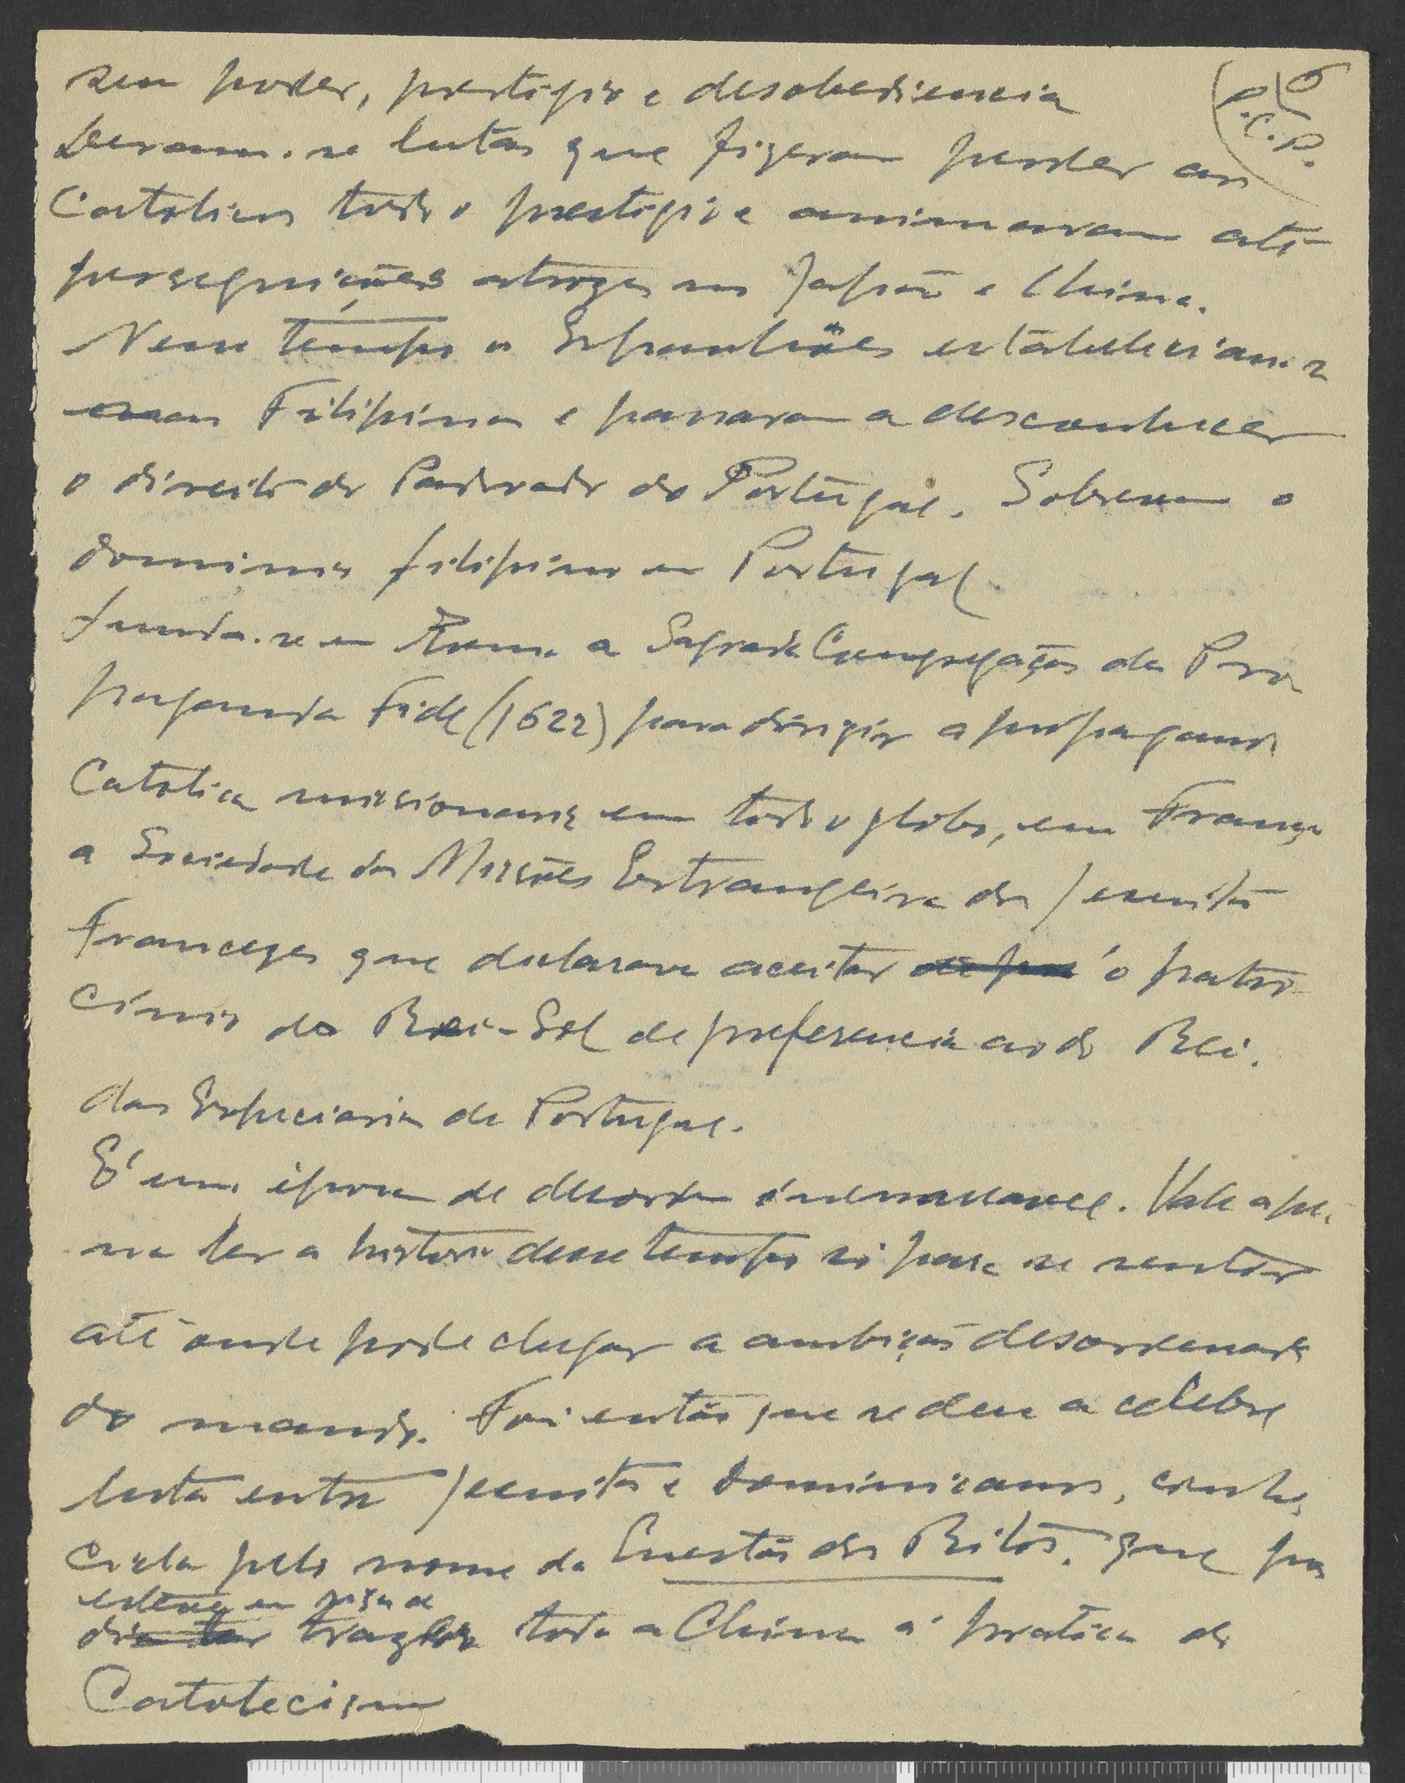 seu poder, prestigio e desobediencia
6
P.C.P.
Deram-se lutas que fizeram perder aos
Catolicos todo o prestigio e animaram até
perseguições atrozes no Japão e China.
Nesse tempo os Espanhóes estabeleciam-se
nas Filipinas e passaram a desconhecer
o direito do Padroado de Portugal. Sobrevem o
dominio filipino em Portugal
funda-se em Roma a Sagrada Congregação da Pro
paganda Fide (1622) para dirigir a propaganda
Catolica missionaria em todo o globo, em França
a Sociedade das Missões Estrangeiras dos Jesuitas
Francezes que declarava aceitar o patro-
cinio do Rei-Sol de preferencia ao do Rei
das Especiarias de Portugal.
É uma época de desordem inenarravel. Vale a pe-
na ler a historia desse tempo só para se sentir
até onde pode chegar a ambição desordenada
do mando. Foi então que se deu a celebre
luta entre Jesuitas e Dominicanos, conhe
cida pelo nome da Questão dos Ritos. que po
esteve em risco de
dia ter trazer toda a China á pratica do
Catolecismo